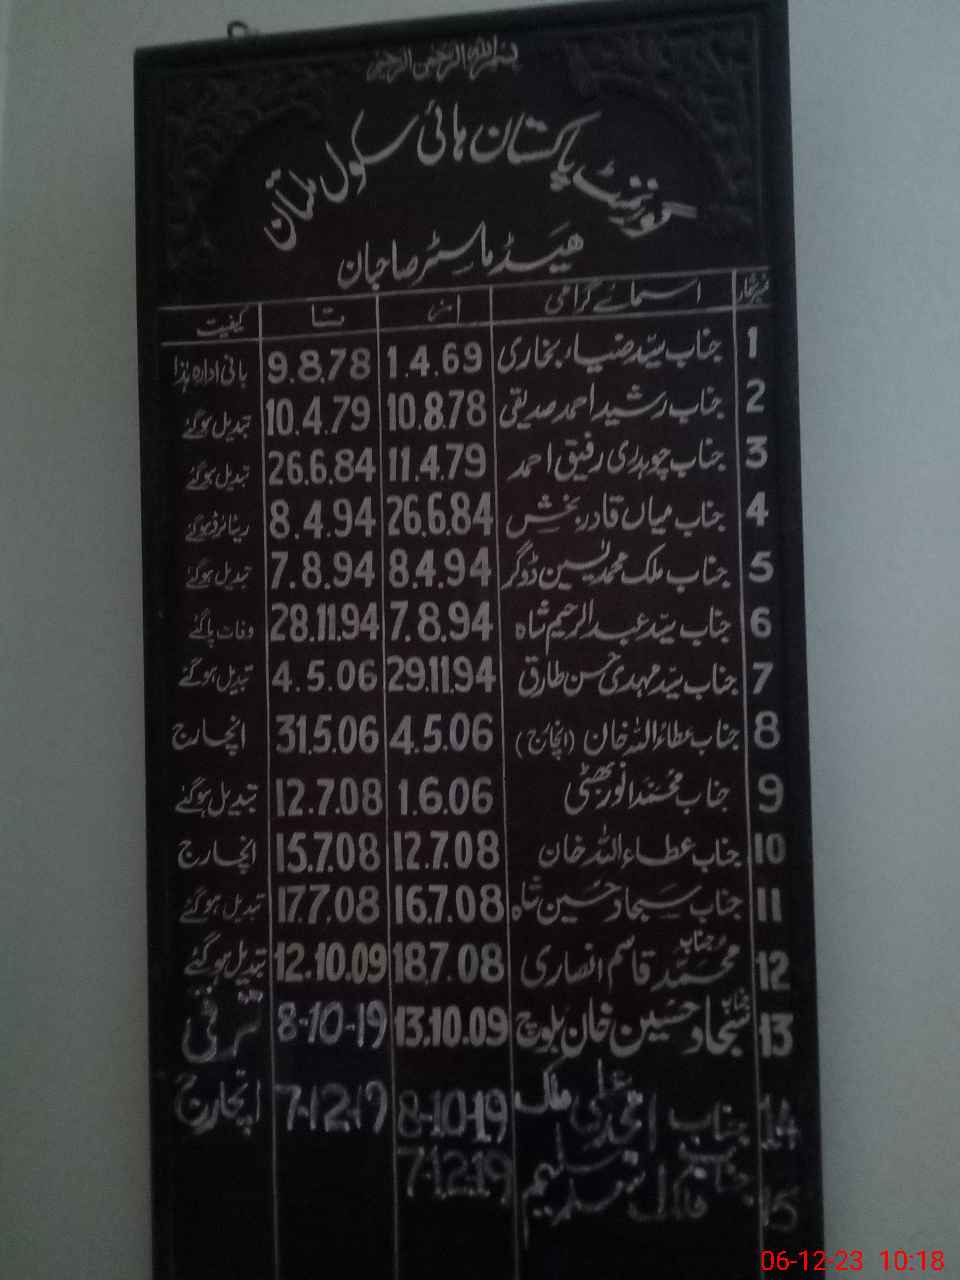 بسم اللہ الرحمن الرحیم
گورنمنٹ پاکستان ہائی سکول ملتان
ھیڈ ماسٹر صاحبان
نمبر شمار اسمائے گرامی از تا کیفیت
1 جناب سید ضیاء بخاری 1.4.69 9.8.78 بانی ادارہ ہذا
2 جناب رشید احمد صدیقی 10.8.78 10.4.79 تبدیل ہو گئے
3 جناب چوہدری رفیق احمد 11.4.79 26.6.84 تبدیل ہو گئے
4 جناب میاں قادر بخش 26.6.84 8.4.94 ریٹائرڈ ہو گئے
5 جناب ملک محمد یٰسین ڈوگر 8.4.94 7.8.94 تبدیل ہو گئے
6 جناب سید عبدالرحیم شاہ 7.8.94 28.11.94 وفات پا گئے
7 جناب سید مہدی حسن طارق 29.11.94 4.5.06 تبدیل ہو گئے
8 جناب عطاء اللہ خان (انچارج) 4.5.06 31.5.06 انچارج
9 جناب محمد انور بھٹی 1.6.06 12.7.08 تبدیل ہو گئے
10 جناب عطاء اللہ خان 12.7.08 15.7.08 انچارج
11 جناب سجاد حسین شاہ 16.7.08 17.7.08 تبدیل ہو گئے
12 جناب محمد قاسم انصاری 18.7.08 12.10.09 تبدیل ہو گئے
13 جناب سجاد حسین خان بلوچ 13.10.09 8-10-19 ترقی
14 جناب امجد علی ملک 8-10-19 7-12-19 انچارج
15 جناب سلیم 7-12-19
06-12-23 10:18